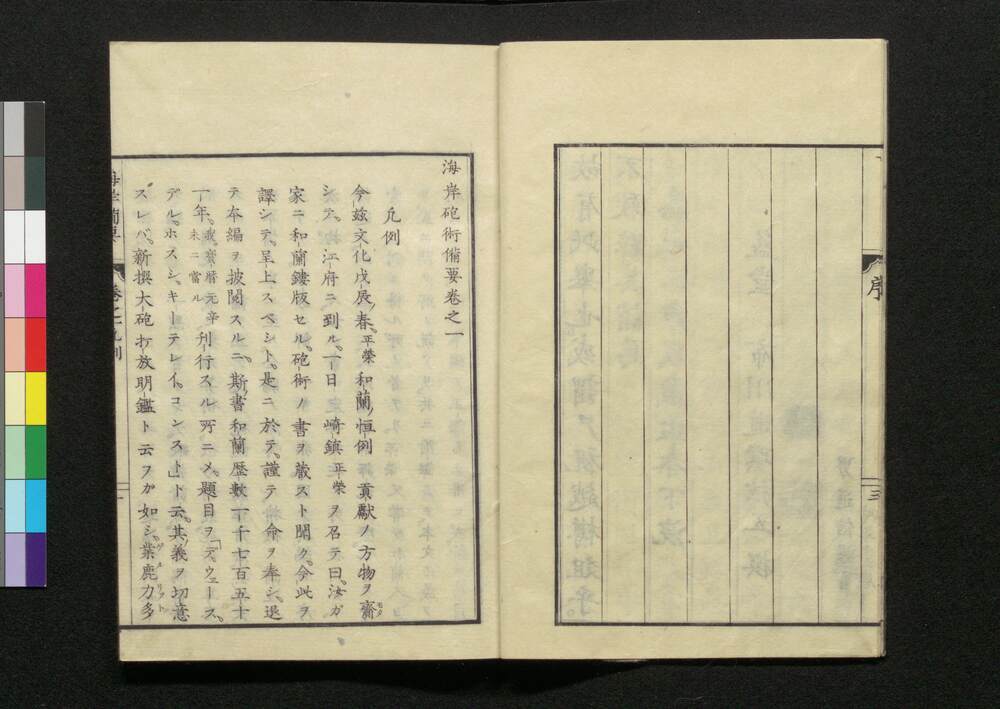 序
三
海岸砲術備要巻之一
凡例
今玆文化戊辰ノ春。平榮和蘭ノ恒例貢獻ノ方物ヲ齎モタ
シテ。江府ニ到ル。一日崎鎮平榮ヲ召テ曰。汝ガ
家ニ和蘭鏤版セル。砲術ノ書ヲ蔵スト聞ク。今此ヲ
譯シテ。呈上スベシト。是ニ於テ。謹テ命ヲ奉シ。退
テ本編ヲ披閲スルニ。斯ノ書和蘭歴數一千七百五十
一年。我。寳暦元辛未ニ當ル刊行スル所ニメ。題目ヲ「デ。ウェース。
デル。ホスシ。キーテレイ。コンスト」ト云。其ノ義ヲ切意
スレバ。新撰大砲打放明鑑ト云フカ如シ。業鹿力多
海岸備要
巻之一凡例
一